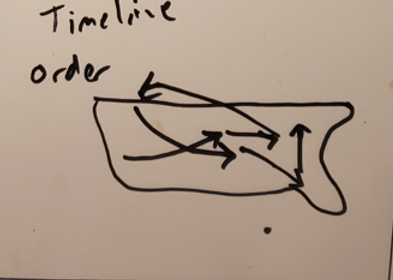 Timeline
order